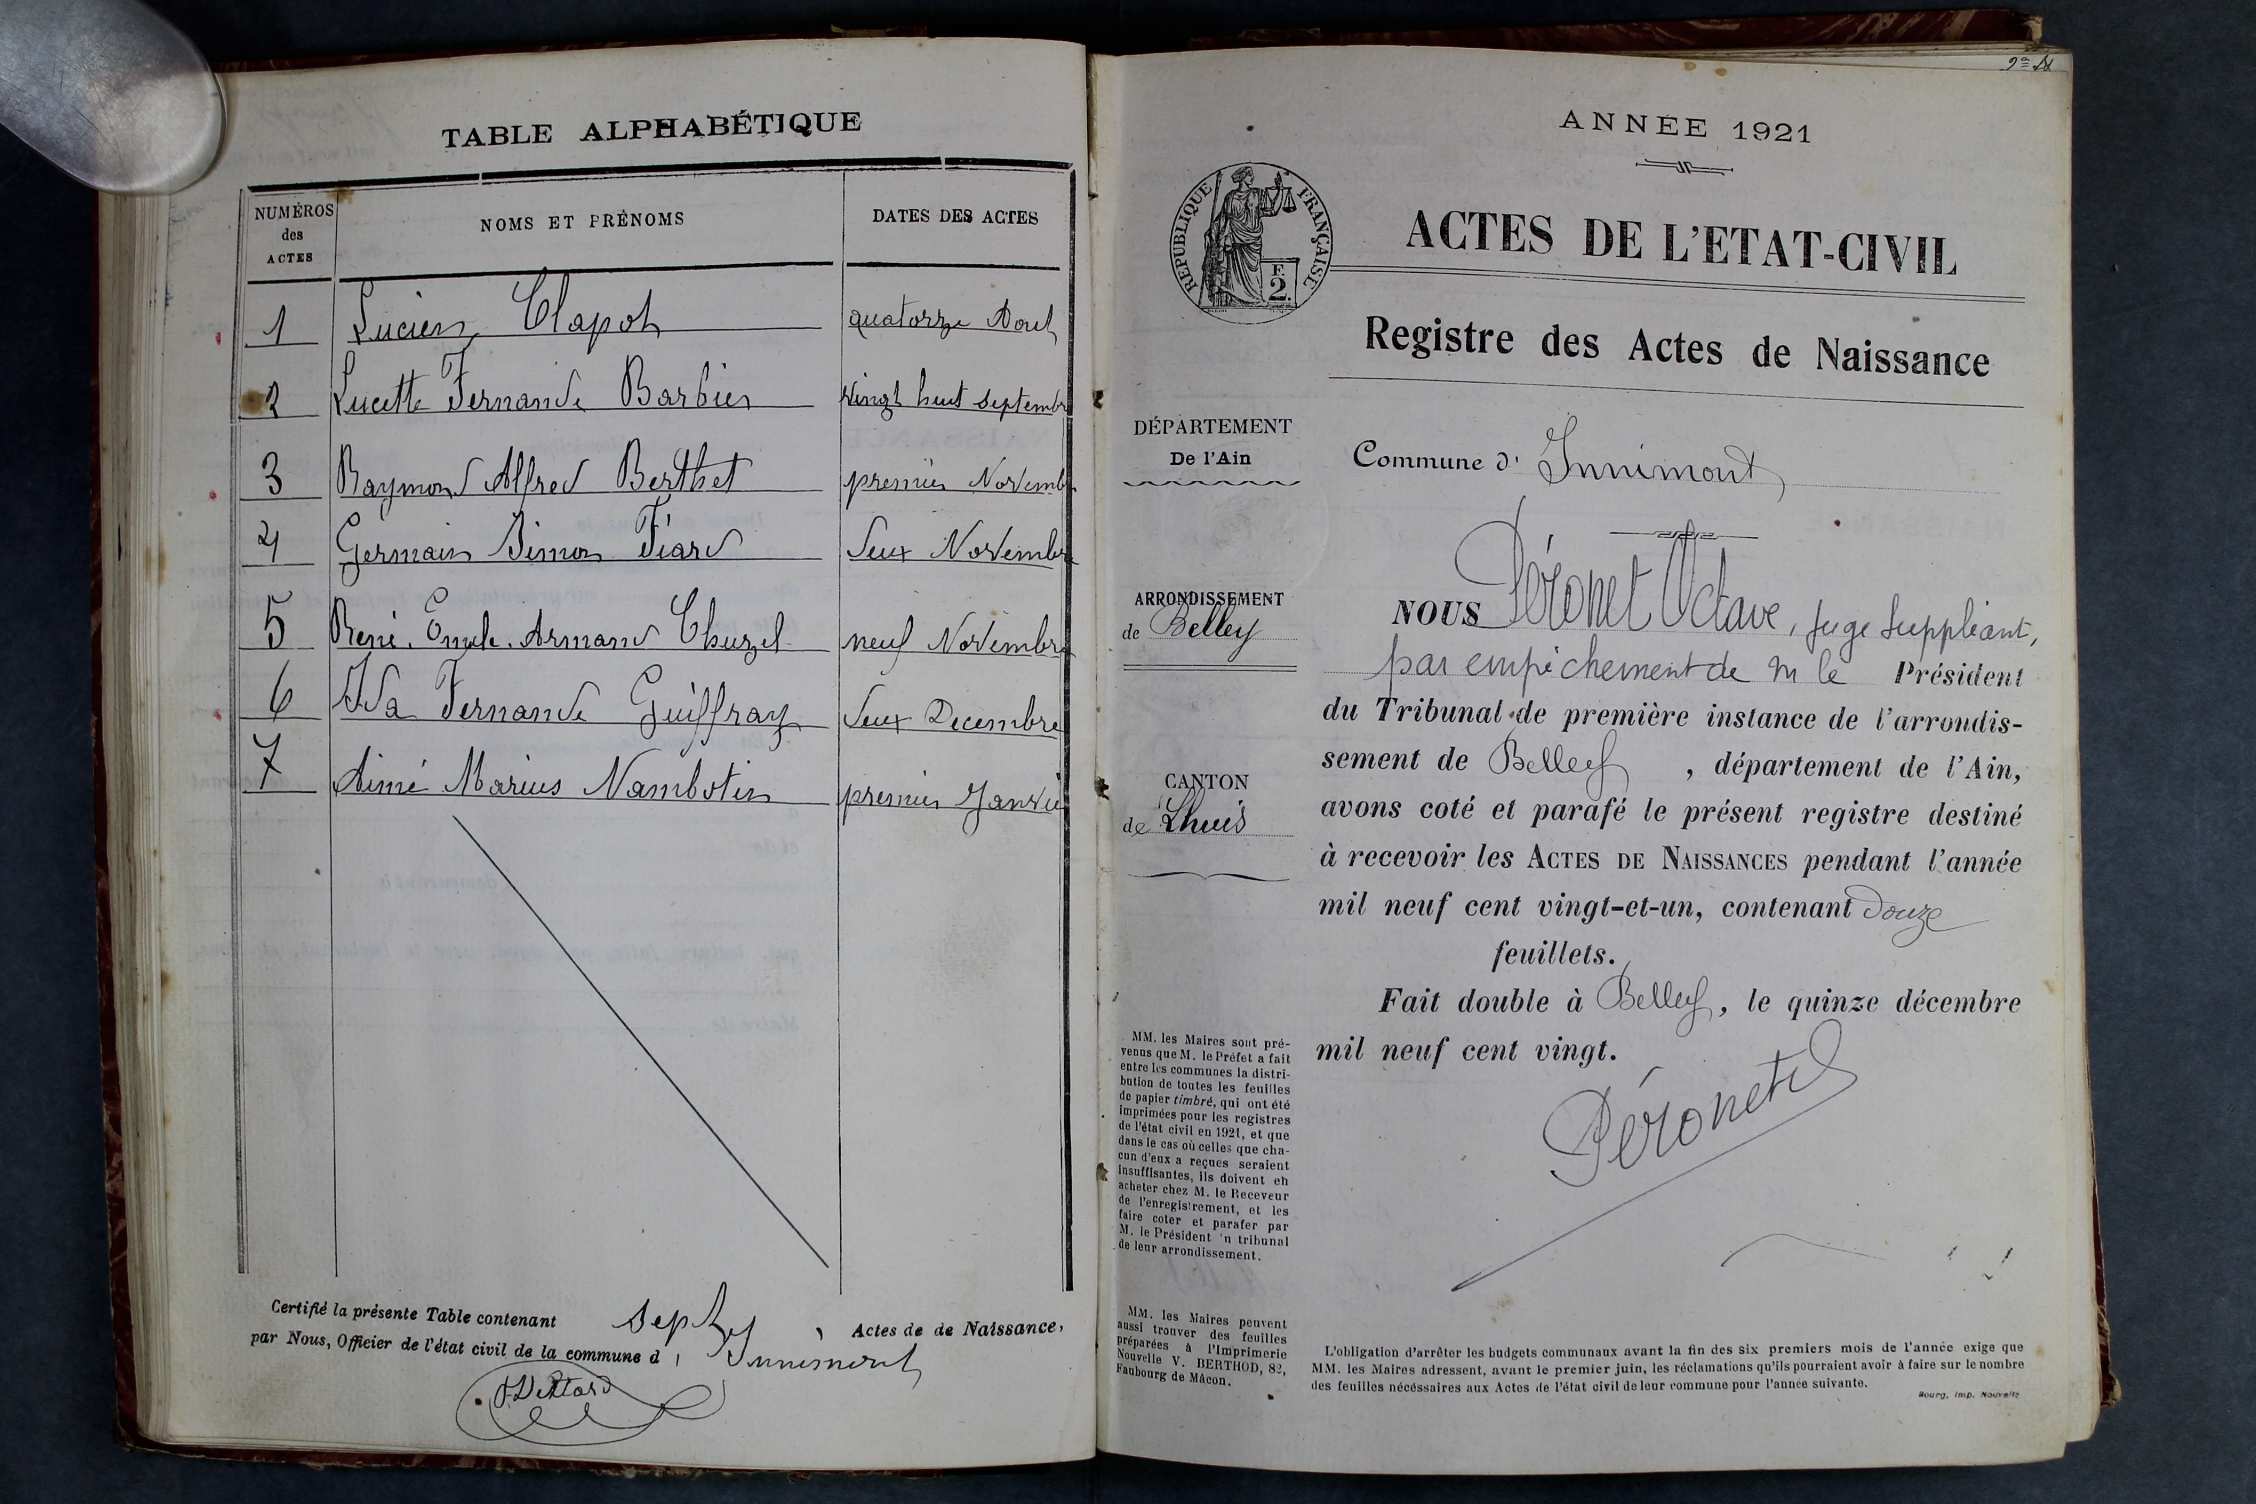 TABLE ALPHABÉTIQUE
NUMÉROS
des
ACTES
NOMS ET PRÉNOMS
DATES DES ACTES
1 Lucien Clapot quatorze Aout
2 Lucette Fernande Barbier vingt huit septembre
3 Raymond Alfred Berthet premier Novembre
4 Germain Simon Tiard deux Novembre
5 René Emile Armand Chuzel neuf Novembre
6 Ida Fernande Guiffray deux Decembre
7 Aimé Marius Nambotin premier Janvie
Certifié la présente Table contenant sept Actes de de Naissance,
par Nous, Officier de l'état civil de la commune d' Innimont
ANNÉE 1921
RÉPUBLIQUE FRANÇAISE
F.
2.
ACTES DE L'ETAT-CIVIL
Registre des Actes de Naissance
DÉPARTEMENT
De l'Ain
ARRONDISSEMENT
de Belley
CANTON
de Lhuis
Commune d' Innimont
NOUS Péronet Octave, juge suppléant,
par empêchement de M le Président
du Tribunal de première instance de l'arrondis-
sement de Belley, département de l'Ain,
avons coté et parafé le présent registre destiné
à recevoir les ACTES DE NAISSANCES pendant l'année
mil neuf cent vingt-et-un, contenant Douze
feuillets.
Fait double à Belley, le quinze décembre
mil neuf cent vingt.
Péronet
MM. les Maires sont pré-
venus que M. le Préfet a fait
entre les communes la distri-
bution de toutes les feuilles
de papier timbré, qui ont été
imprimées pour les registres
de l'état civil en 1921, et que
dans le cas où celles que cha-
cun d'eux a reçues seraient
insuffisantes, ils doivent en
acheter chez M. le Receveur
de l'enregistrement, et les
faire coter et parafer par
M. le Président 'u tribunal
de leur arrondissement.
MM. les Maires peuvent
aussi trouver des feuilles
préparées à l'Imprimerie
Nouvelle V. BERTHOD, 82,
Faubourg de Mâcon.
L'obligation d'arrêter les budgets communaux avant la fin des six premiers mois de l'année exige que
MM. les Maires adressent, avant le premier juin, les réclamations qu'ils pourraient avoir à faire sur le nombre
des feuilles nécéssaires aux Actes de l'état civil de leur commune pour l'année suivante.
Bourg, Imp. Nouvelle